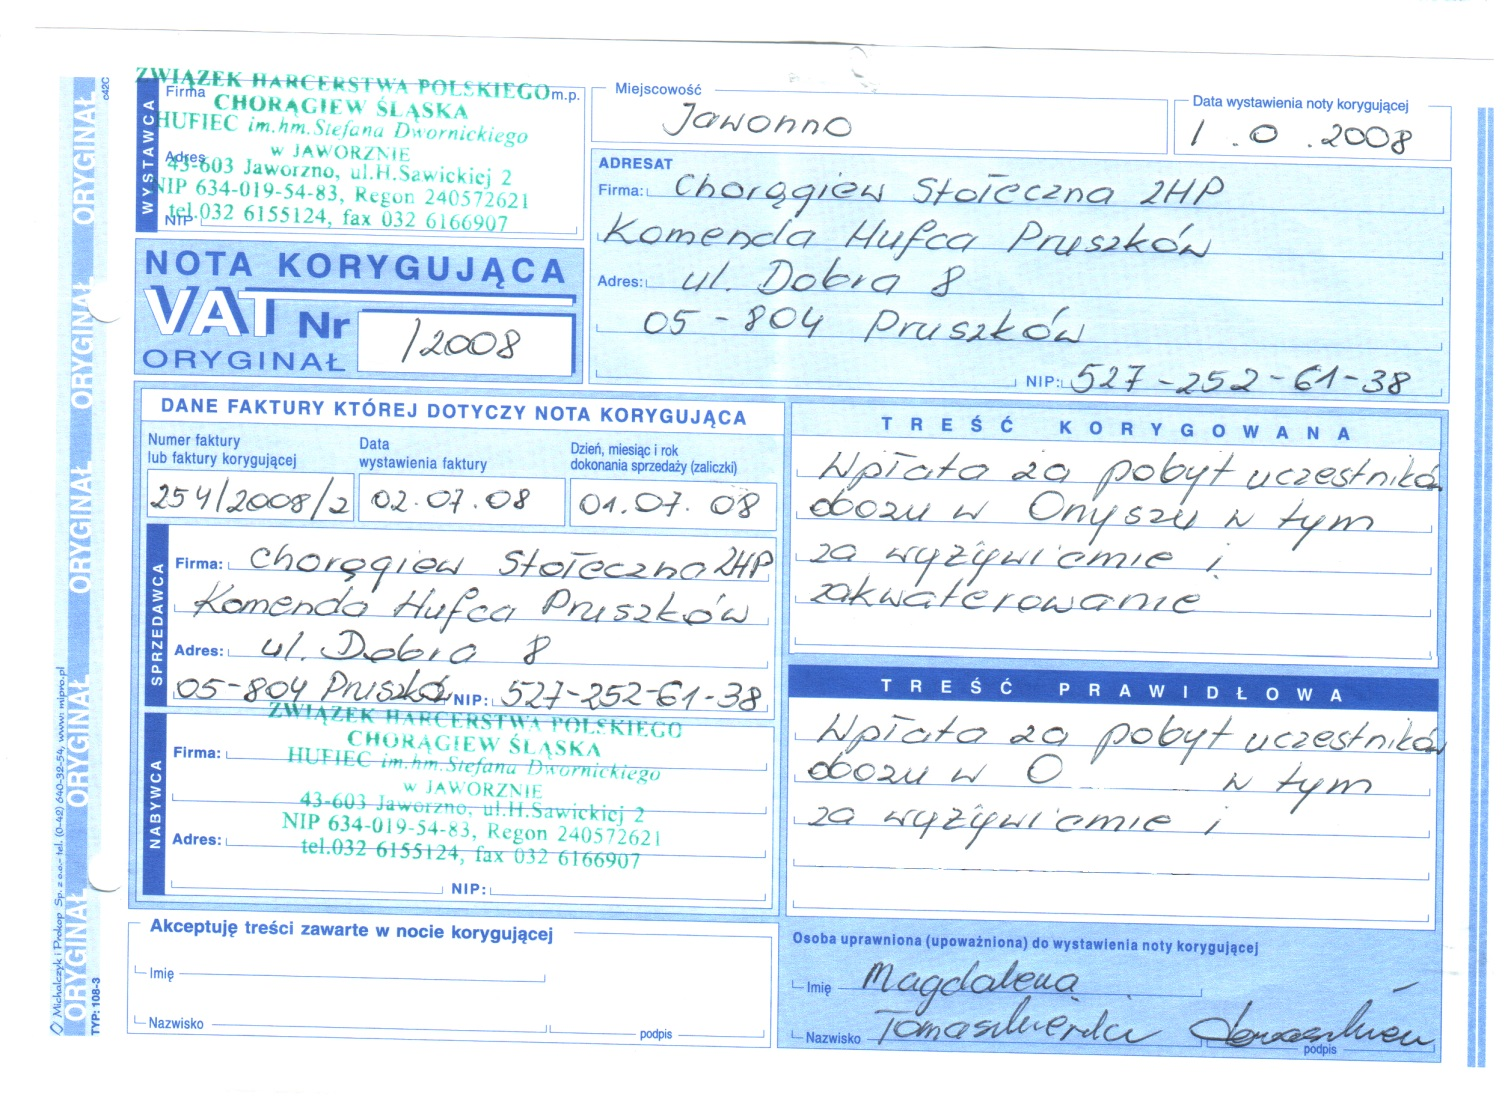 ORYGINAŁ ORYGINAŁ ORYGINAŁ ORYGINAŁ ORYGINAŁ ORYGINAŁ
c42C
Michalczyk i Prokop Sp. z o.o.- tel. (0-42) 640-32-54, www: mipro.pl
TYP: 108-3
WYSTAWCA
Firma
m.p.
ZWIĄZEK HARCERSTWA POLSKIEGO
CHORĄGIEW ŚLĄSKA
HUFIEC im.hm.Stefana Dwornickiego
w JAWORZNIE
Adres
43-603 Jaworzno, ul.H.Sawickiej 2
NIP 634-019-54-83, Regon 240572621
tel.032 6155124, fax 032 6166907
NIP
Miejscowość
Data wystawienia noty korygującej
1 . 0 . 2008
ADRESAT
Firma: Chorągiew Stołeczna ZHP
Komenda Hufca Pruszków
Adres: ul. Dobra 8
05-804 Pruszków
NIP: 527-252-61-38
NOTA KORYGUJĄCA
VAT Nr /2008
ORYGINAŁ
DANE FAKTURY KTÓREJ DOTYCZY NOTA KORYGUJĄCA
Numer faktury
lub faktury korygującej
254/2008/2
Data
wystawienia faktury
02.07.08
Dzień, miesiąc i rok
dokonania sprzedaży (zaliczki)
01.07.08
SPRZEDAWCA
Firma: Chorągiew Stołeczna ZHP
Komenda Hufca Pruszków
Adres: ul. Dobra 8
05-804 Pruszków NIP: 527-252-61-38
NABYWCA
ZWIĄZEK HARCERSTWA POLSKIEGO
CHORĄGIEW ŚLĄSKA
Firma:
HUFIEC im.hm.Stefana Dwornickiego
w JAWORZNIE
43-603 Jaworzno, ul.H.Sawickiej 2
NIP 634-019-54-83, Regon 240572621
Adres:
tel.032 6155124, fax 032 6166907
NIP:
TREŚĆ KORYGOWANA
Wpłata za pobyt uczestników
obozu w Onyszu w tym
za wyżywienie i
zakwaterowanie
TREŚĆ PRAWIDŁOWA
Wpłata za pobyt uczestników
obozu w O w tym
za wyżywienie i
Akceptuję treści zawarte w nocie korygującej
Imię
Nazwisko
podpis
Osoba uprawniona (upoważniona) do wystawienia noty korygującej
Imię Magdalena
Nazwisko
podpis